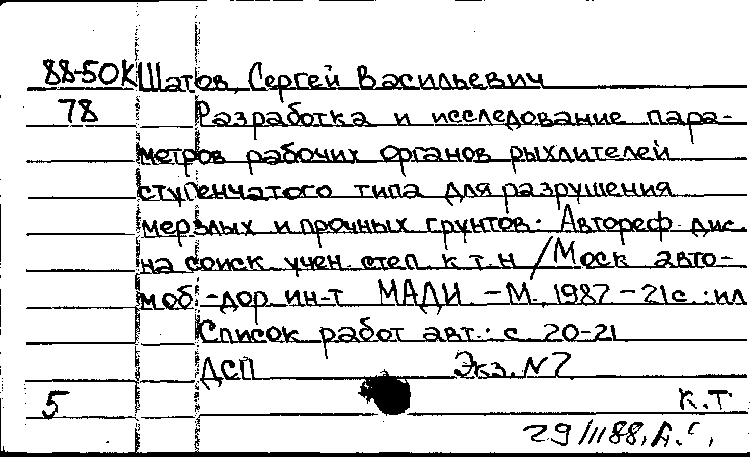 88-50К Шатов, Сергей Васильевич
78 Разработка и исследование пара-
метров рабочих органов рыхлителей
ступенчатого типа для разрушения
мерзлых и прочных грунтов. Автореф. дис.
на соиск. учен. степ. к.т.н / Моск авто-
моб.-дор. ин-т МАДИ. -М., 1987 - 21 с. : ил
Список работ авт.: с. 20-21
ДСП Экз. N7
5 К.Т
29/II 88.